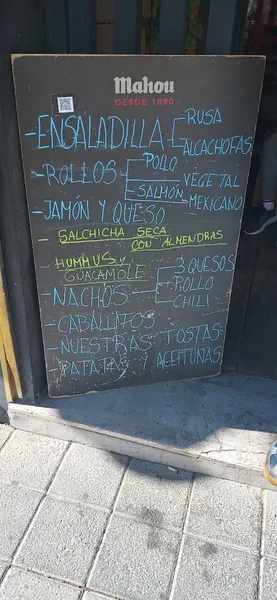 Mahou
DESDE 1890
-ENSALADILLA RUSA
ALCACHOFAS
-ROLLOS POLLO VEGETAL
SALMÓN MEXICANO
-JAMÓN Y QUESO
- SALCHICHA SECA
CON ALMENDRAS
- HUMMUS y
GUACAMOLE
-NACHOS 3 QUESOS
POLLO
CHILI
-CABALLITOS
-NUESTRAS TOSTAS
-PATATAS Y ACEITUNAS